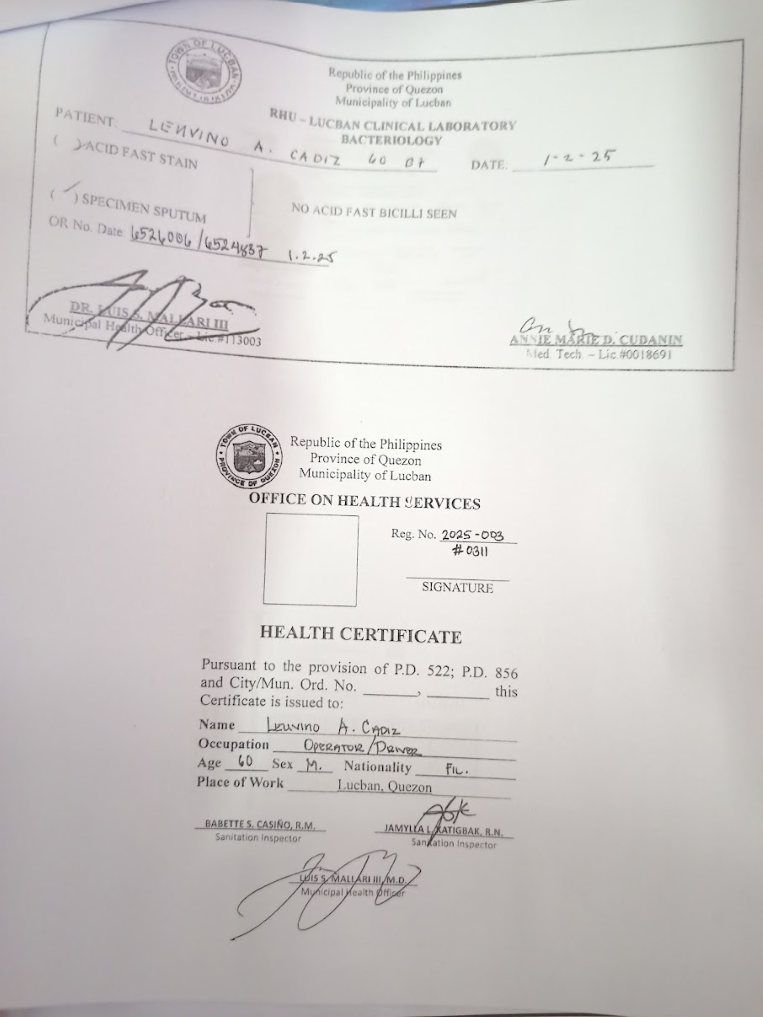 TOWN OF LUCBAN
Republic of the Philippines
Province of Quezon
Municipality of Lucban
RHU – LUCBAN CLINICAL LABORATORY
BACTERIOLOGY
PATIENT: LEUVINO A. CADIZ 60 DATE: 1-2-25
( )ACID FAST STAIN
( ✓ ) SPECIMEN SPUTUM
NO ACID FAST BICILLI SEEN
OR No. Date 6526006 /6524837 1.2.25
DR. LUIS S. MALLARI III
Municipal Health Officer – Lic #113003
ANNIE MARIE D. CUDANIN
Med Tech – Lic.#0018691
TOWN OF LUCBAN
PROVINCE OF QUEZON
Republic of the Philippines
Province of Quezon
Municipality of Lucban
OFFICE ON HEALTH SERVICES
Reg. No. 2025-003
#0311
SIGNATURE
HEALTH CERTIFICATE
Pursuant to the provision of P.D. 522; P.D. 856
and City/Mun. Ord. No. ________, ________ this
Certificate is issued to:
Name Leuvino A. Cadiz
Occupation OPERATOR/DRIVER
Age 60 Sex M. Nationality FIL.
Place of Work Lucban, Quezon
BABETTE S. CASIÑO, R.M.
Sanitation Inspector
JAMYLLA L. KATIGBAK, R.N.
Sanitation Inspector
LUIS S. MALLARI III, M.D.
Municipal Health Officer